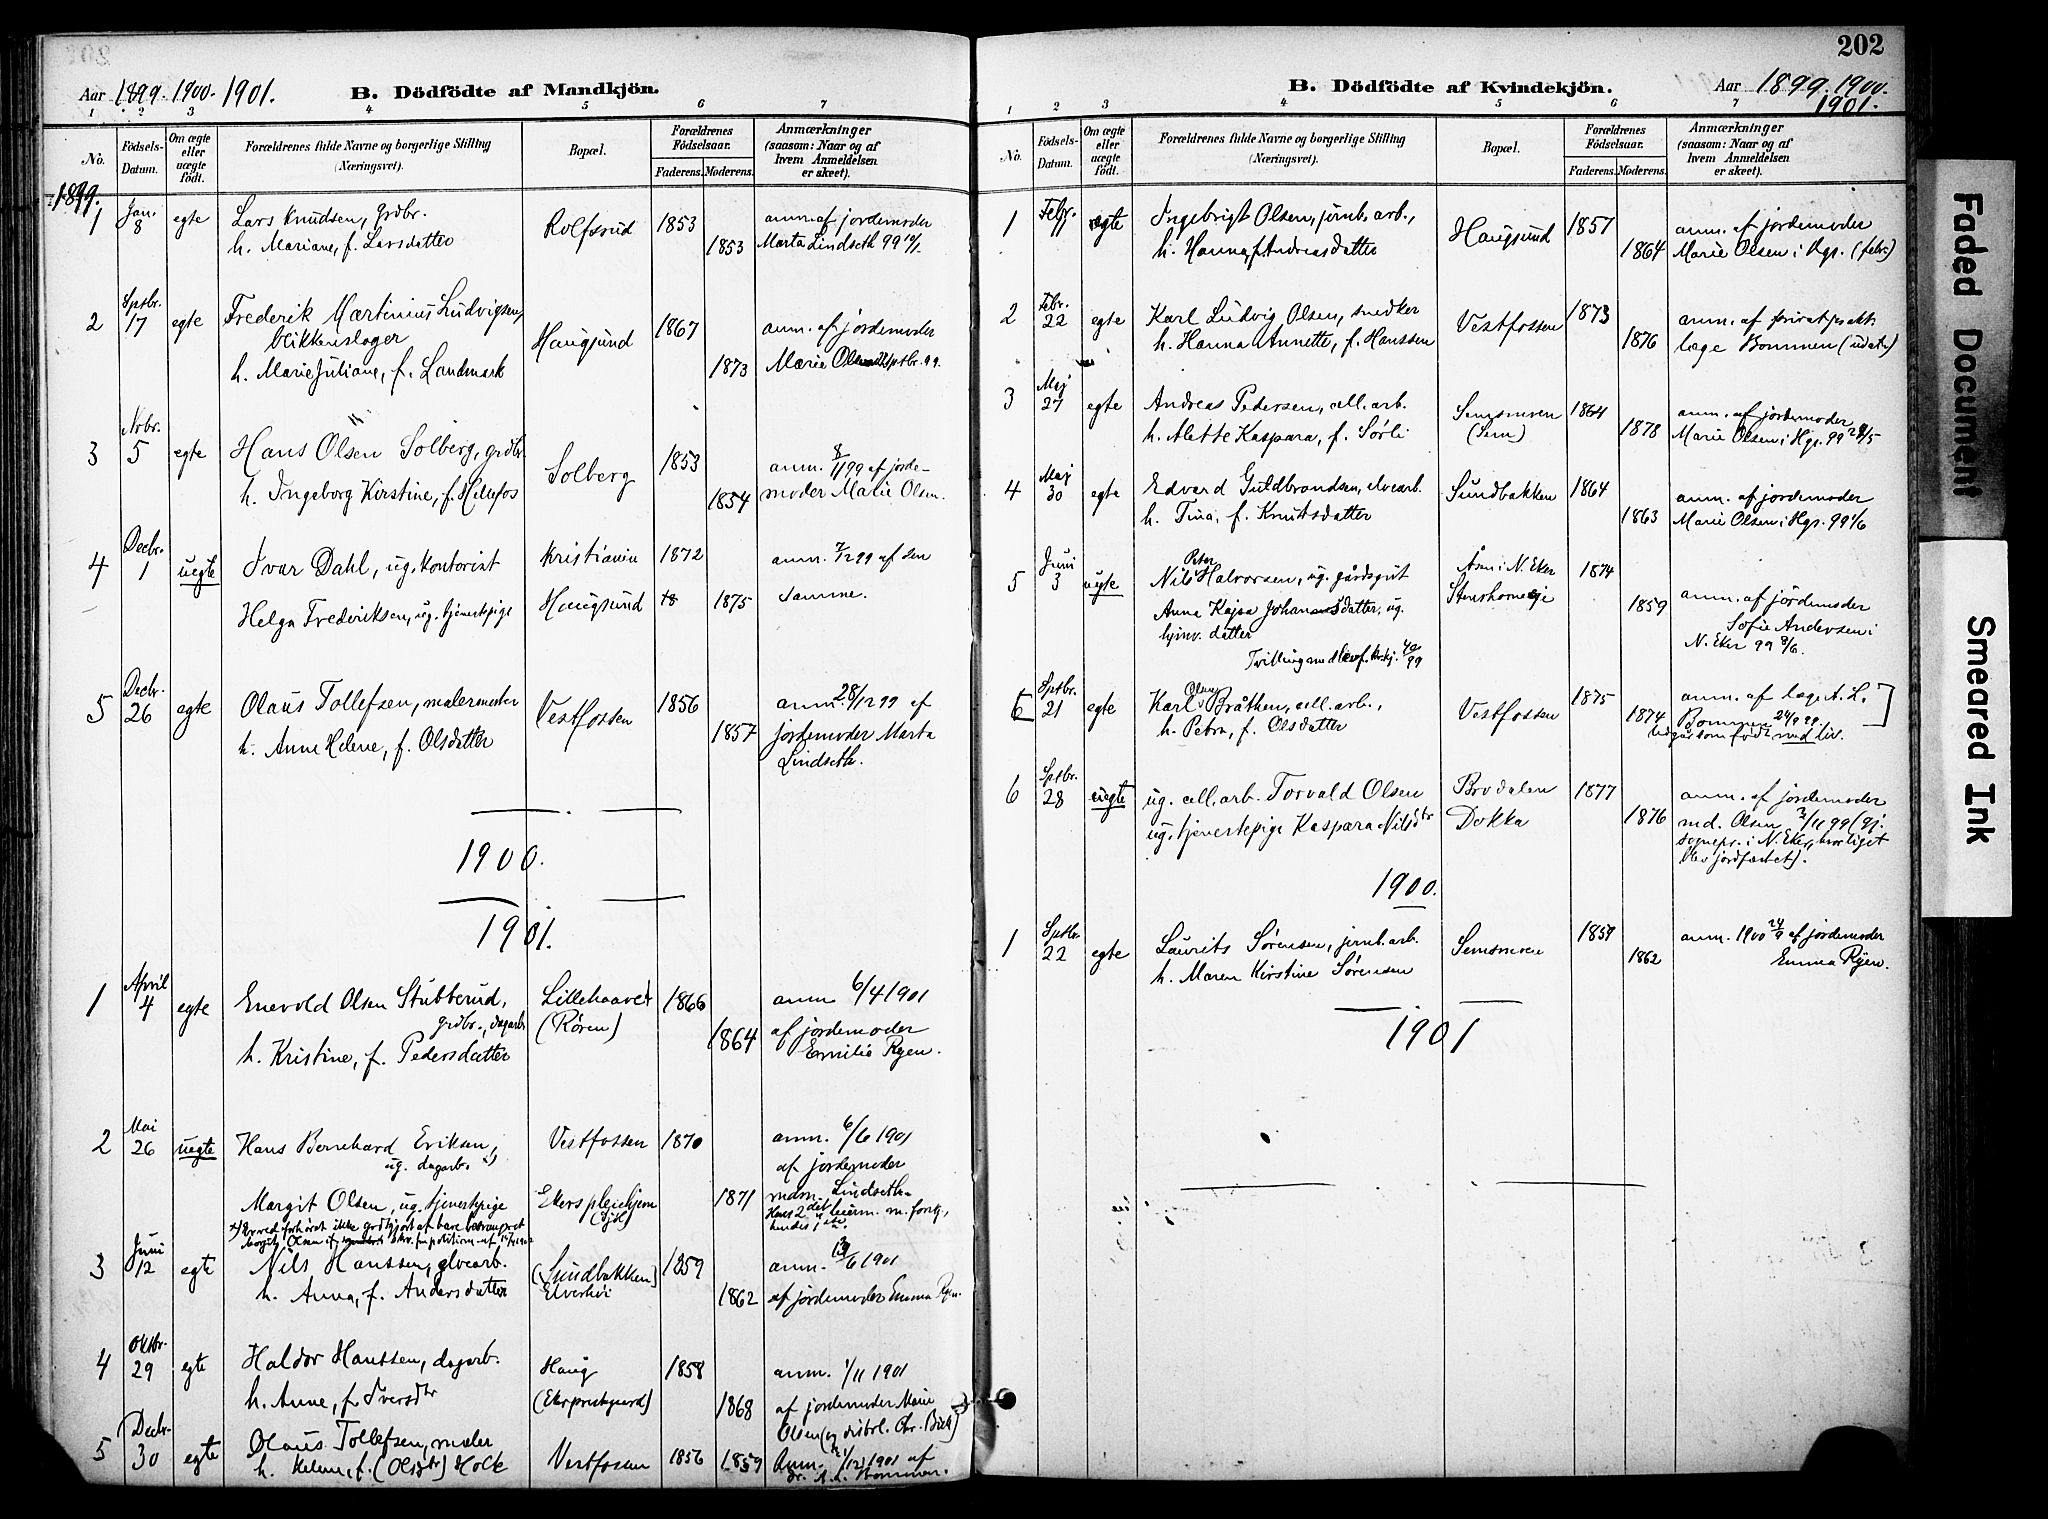 202
Aar 1899. 1900. 1901.
B. Dödfödte af Mandkjön.
1 2 3 4 5 6 7
No.
Födsels-Datum.
Om ægte eller uægte födt.
Forældrenes fulde Navne og borgerlige Stilling (Næringsvei).
Bopæl.
Forældrenes Födselsaar.
Faderens. Moderens.
Anmærkninger (saasom: Naar og af hvem Anmeldelsen er skeet).
1899.
1 Jan. 8 egte Lars Knudsen, grdbr. Rolfsrud 1853 anm. af jordemoder
h. Mariane, f. Larsdatter 1853 Marta Lindseth 99
2 Sptbr. 17 egte Frederik Martinius Ludvigsen, Haugsund 1867 anm. af jordemoder
blikkenslager
h. Marie Juliane, f. Landmark 1873 Marie Olsen sptbr. 99.
3 Novbr. 5 egte Hans Olsen Solberg, grdbr. Solberg 1853 anm. 8/11 99 af jorde-
h. Ingeborg Kirstine, f. Hellefos 1854 moder Marie Olsen.
4 Decbr. 1 uegte Ivar Dahl, ug. kontorist Kristiania 1872 anm. 7/12 99 af den
Helga Frederiksen, ug. tjenestepige Haugsund 1875 samme.
5 Decbr. 26 egte Olaus Tollefsen, malermester Vestfossen 1856 anm. 28/12 99 af
h. Anne Helene, f. Olsdatter 1857 jordemoder Marta
Lindseth.
1900.
1901.
1 April 4 egte Enevold Olsen Stubberud, Lillehaavet 1866 anm 6/4 1901
grdbr., dagarb. (Røren)
h. Kristine, f. Pedersdatter 1864 af jordemoder
Emilie Ryen.
2 Mai 26 uegte Hans Bernhard Eriksen, Vestfossen 1870 anm. 6/6 1901
ug. dagarb. af jordemoder
Margit Olsen, ug. tjenestepige Ekers pleiehjem 1871 mdm. Lindseth.
3 Juni 12 egte Nils Hanssen, elvearb. (Sundbakken) 1859 anm. 6 1901
h. Anna, f. Andersdatter Elverhöi 1862 af jordemoder Emma Ryen.
4 Oktbr. 29 egte Haldor Hanssen, dagarb. Haug 1858 anm. 1/11 1901
h. Anne, f. Iversdtr (Eker prestegaard) 1868 af jordemoder Marie
Olsen (og distrl. Chr. Bick)
5 Decbr. 30 egte Olaus Tollefsen, maler Vestfossen 1856 Anm. 1901 af
h. Helene, f. (Olsdtr) Holk 1859 dr. A. L. Bommen.
B. Dödfödte af Kvindekjön.
Aar 1899. 1900. 1901.
1 2 3 4 5 6 7
No.
Födsels-Datum.
Om ægte eller uægte födt.
Forældrenes fulde Navne og borgerlige Stilling (Næringsvei).
Bopæl.
Forældrenes Födselsaar.
Faderens. Moderens.
Anmærkninger (saasom: Naar og af hvem Anmeldelsen er skeet).
1 Febr. 11 egte Ingebrigt Olsen, jernb. arb., Haugsund 1857 anm. af jordemoder
h. Hanna, f. Andreasdatter 1864 Marie Olsen i Hgs. (febr.)
2 Febr. 22 egte Karl Ludvig Olsen, snedker Vestfossen 1873 anm. af privatprakt.
h. Hanna Annette, f. Hanssen 1876 læge Bommen (udat.)
3 Maj 27 egte Andreas Pedersen, cell. arb. Semsmoen 1864 anm. af jordemoder
h. Alette Kaspara, f. Sörli (Sem) 1878 Marie Olsen i Hgs. 99 28/5
4 Maj 30 egte Edvard Guldbrandsen, elvearb. Sundbakken 1864 anm. af jordemoder
h. Tina, f. Knutsdatter 1863 Marie Olsen i Hgs. 99 1/6
5 Juni 3 uegte Nils Peter Halvorsen, ug. gårdsgut Åsen i N. Eker 1874
Anne Kajsa Johansdatter, ug. Stenshorneje 1859 anm. af jordemoder
hjmv. datter Sofie Andersen i
N. Eker 99 8/6.
6 Sptbr. 21 egte Karl Olaus Bråthen, cell. arb., Vestfossen 1875 anm. af læge A. L.
h. Petra, f. Olsdatter 1874 Bommen 24/9 99.
Udgår som född med liv.
6 Sptbr. 28 uegte ug. cell. arb. Torvald Olsen Brodalen 1877 anm. af jordemoder
ug. tjenestepige Kaspara Nilsdtr Dokka 1876 md. Olsen 3/11 99 (gj.
sognepr. i N. Eker, hvor liget
blev jordfæstet).
1900.
1 Sptbr. 22 egte Laurits Sørensen, jernb. arb. Semsmoen 1859 anm. 1900 24/9 af jordemoder
h. Maren Kirstine Sørensen 1862 Emma Ryen.
1901
Faded Document
Smeared Ink